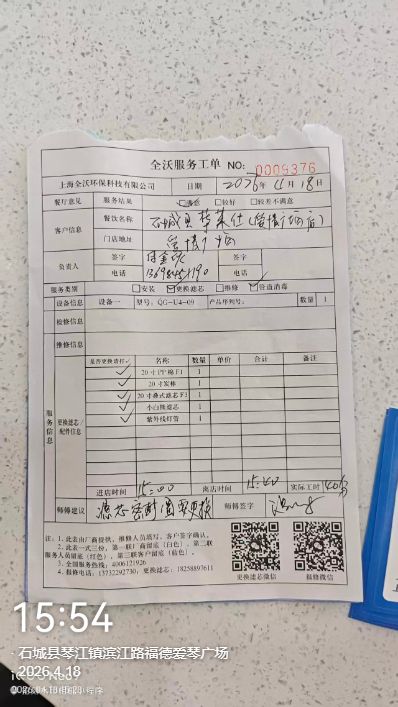 全沃服务工单 NO: 0009376
上海全沃环保科技有限公司 日期 2026年4月18日
餐厅意见 服务结果 满意 较好 较差不满意
客户信息 餐饮名称 石城县华莱仕(爱情广场店)
门店地址 爱情广场
负责人 签字 签字
电话 电话
服务类别 安装 更换滤芯 维修 管道消毒
设备信息 设备一 型号: QG-U4-09 产品序列号: 数量 1
检修信息
维修信息
服务信息
更换滤芯/配件信息
是否更换请打✓ 名称 数量 单价 合计 备注
✓ 20寸PP棉F1 1
✓ 20寸炭棒 1
✓ 20寸叠式滤芯F3 1
✓ 小白狮滤芯 1
✓ 紫外线灯管 1
进店时间 15:00 离店时间 15:40 实际工时 40分
师傅建议 滤芯 需更换 师傅签字
注: 1.此表由厂商提供、维修人员填写、客户签字确认。
2.此表一式三份,第一联厂商留底(白色)、第二联
服务人员留底(红色)、第三联客户留底(黄色)。
3.全国服务热线: 4006121926
4.报修电话: 13732292730、18258897611
更换滤芯微信 报修微信
15:54
· 石城县琴江镇滨江路福德爱琴广场
· 2026.4.18